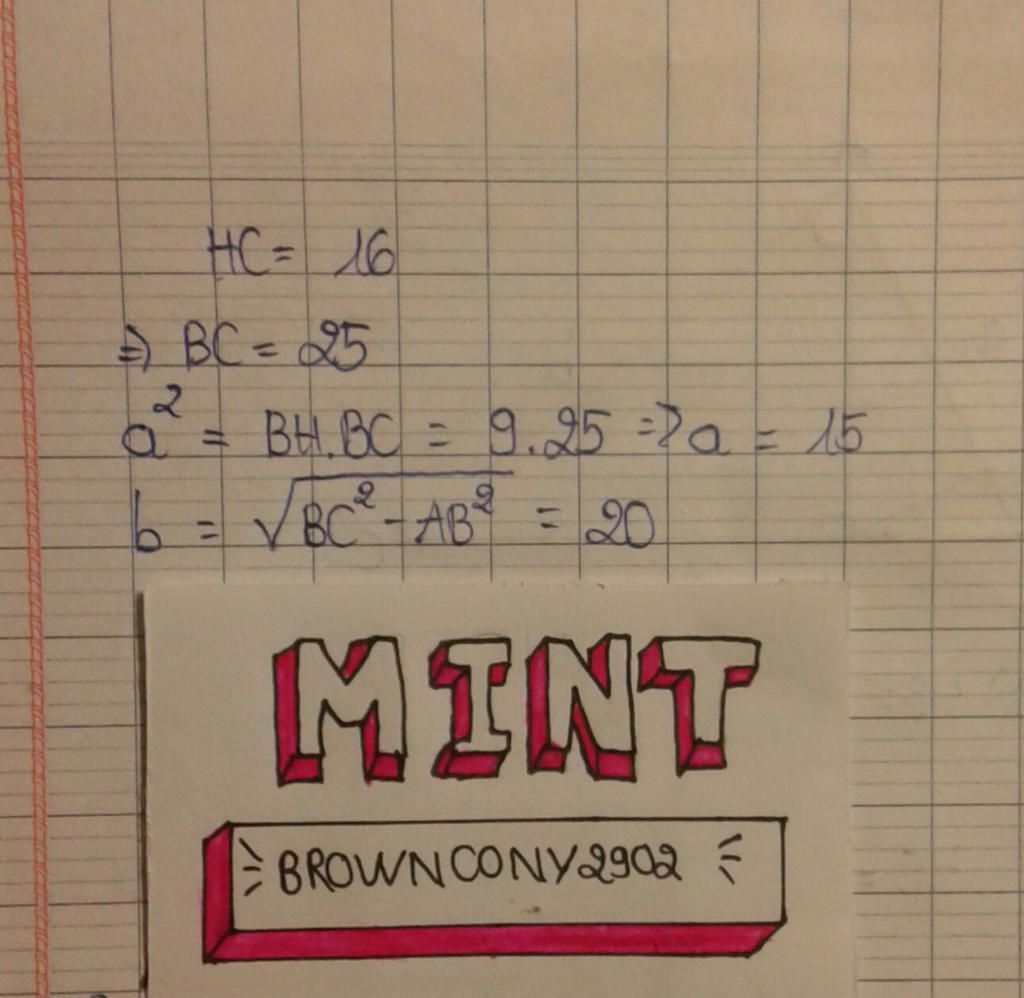 HC = 16
⇒ BC = 25
a² = BH.BC = 9.25 ⇒ a = 15
b = √(BC² - AB²) = 20
MINT
BROWNCONY2902